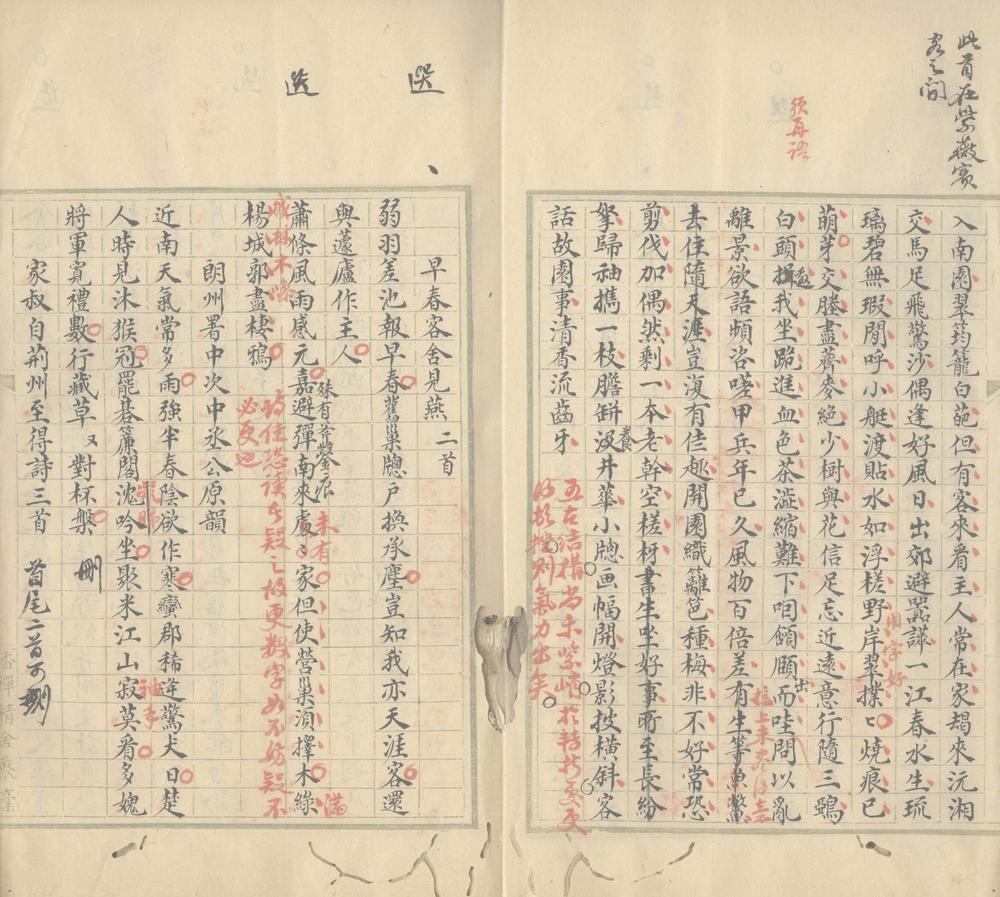 此首在紫薇賓
客之間
須再語
入南園翠筠籠白葩但有客來看主人常在家朅來沅湘
交馬足飛驚沙偶逢好風日出郊避嚣讙一江春水生琉
璃碧無瑕閒呼小艇渡貼水如浮槎野岸翠撲撲燒痕已
萌芽交塍盡薺麥絶少樹與花信足忘近遠意行隨三鵶
白頭揖我坐跪進血色茶澁縮難下咽頷頤而哇問以亂
離景欲語頻咨嗟甲兵年已久風物百倍差有生等魚鱉
去住隨天涯豈復有佳趣開園織籬笆種梅非不好常恐
剪伐加偶然剩一本老幹空槎枒書生坐好事所至長紛
拏歸袖攜一枝膽缾汲井華小牕画幅開燈影披橫斜客
話故園事清香流齒牙
養
出
用字好
五古結構尚未
氣力出矣
選
選
早春客舍見燕二首
弱羽差池報早春舊巢牕戶換承塵豈知我亦天涯客還
與蘧廬作主人
蕭條風雨感元嘉避彈南來處處家但使營巢須擇木綠
楊城郭盡棲鴉
殊有斧鑿痕
未有
滿
詩佳恐讀者疑之故更數字如不妨疑不
必更也
朗州署中次中丞公原韻
近南天氣常多雨強半春陰欲作寒蠻郡稀逢驚犬日楚
人時見沐猴冠罷碁簾閣沈吟坐聚米江山寂莫看多媿
將軍寬禮數行藏草又對杯槃
刪
家叔自荊州至得詩三首
首尾二首可刪